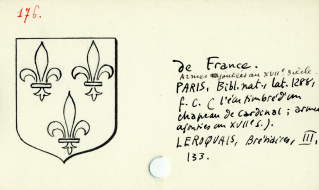 176.
de France.
Armes ajoutées au XVIIe siècle.
PARIS, Bibl. nat., lat. 1288,
f. C. (l'écu timbré d'un
chapeau de cardinal ; armes
ajoutées au XVIIe s.).
LEROQUAIS, Bréviaires, III,
133.